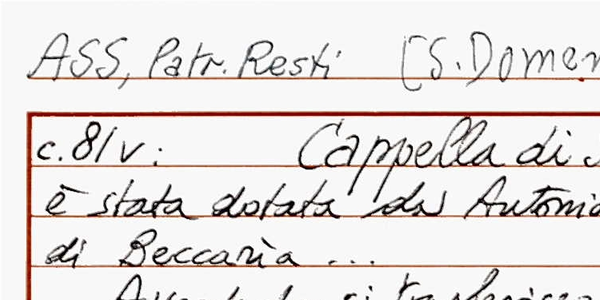 ASS, Patr. Resti [S. Domen
c. 81v: Cappella di
è stata dotata da Antonio
di Beccaria ...
si trasferisce